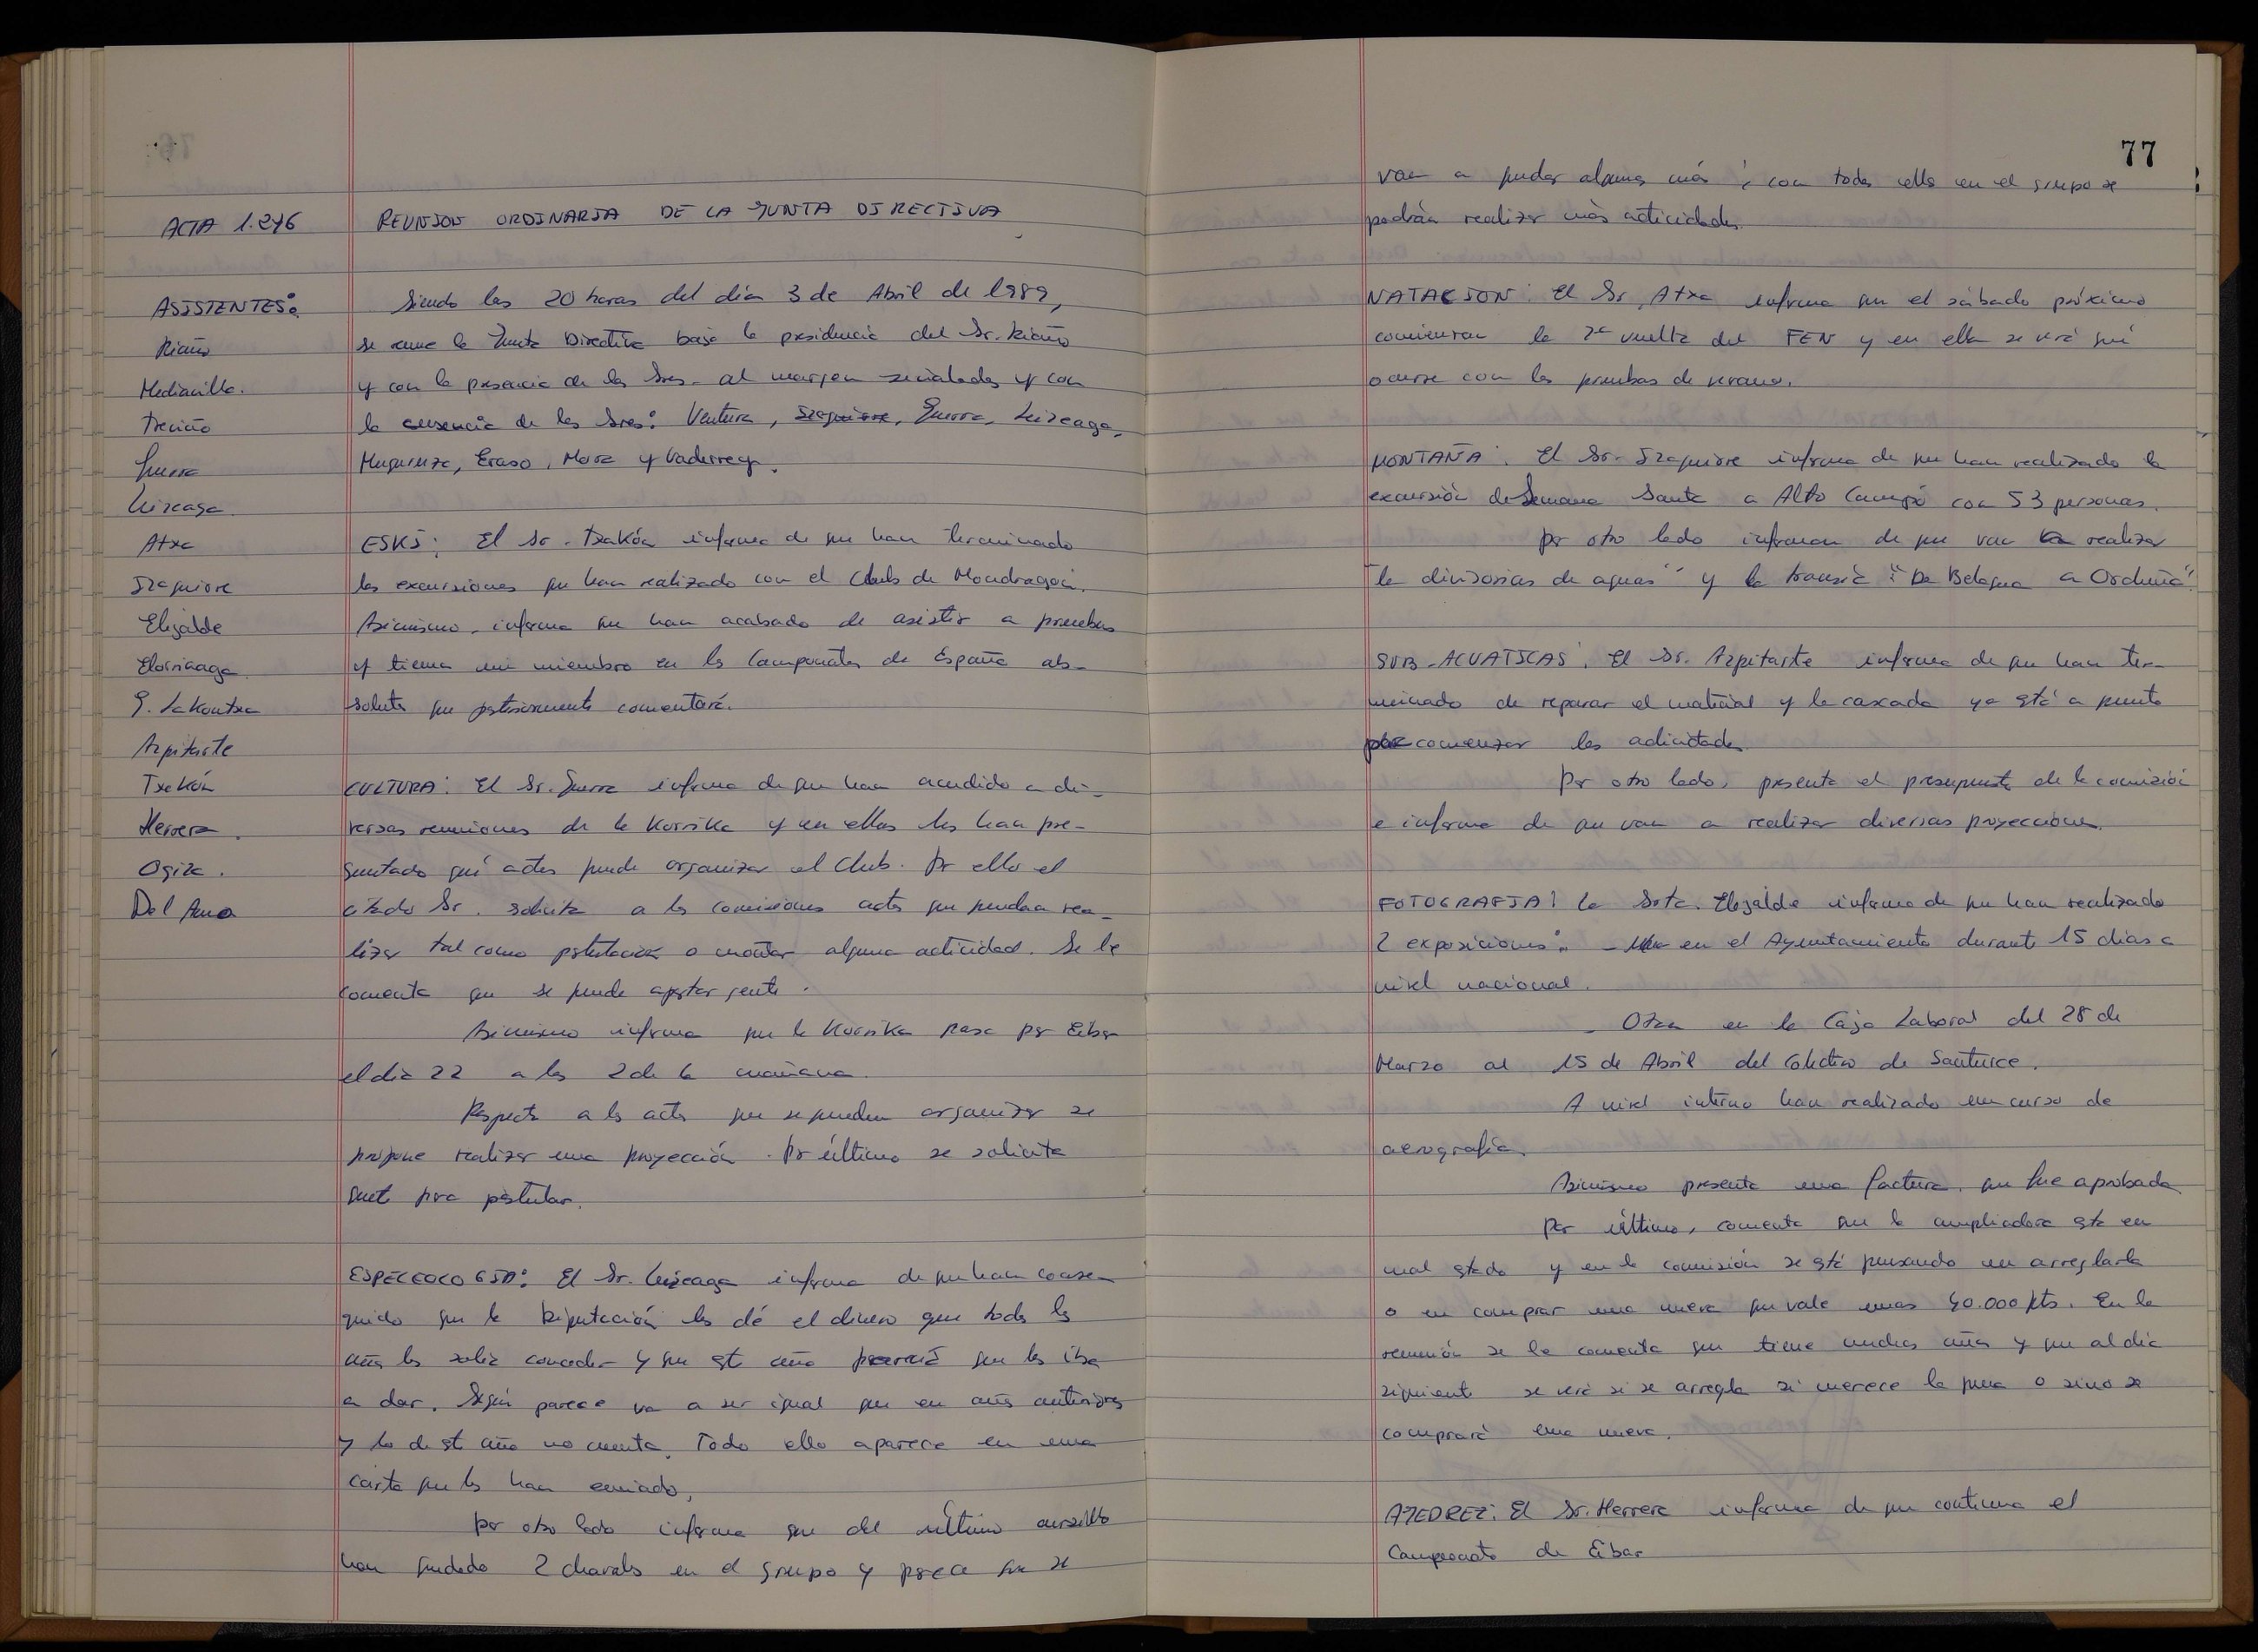 ACTA 1.276
REUNION ORDINARIA DE LA JUNTA DIRECTIVA
ASISTENTES:
Riaño
Mediavilla.
Treviño
Guerra
Leizeaga
Atxa
Izaguirre
Elizalde
Elorriaga
G. Lakontxa
Azpitarte
Txakón
Herrera.
Ogiza.
Del Amo
Siendo las 20 horas del día 3 de Abril de 1989,
se reune la Junta Directiva bajo la presidencia del Sr. Riaño
y con la presencia de los Sres. al margen señalados y con
la ausencia de los Sres: Ventura, Izaguirre, Guerra, Leizeaga,
Muguruza, Eraso, Mora y Vaderrey.
ESKI: El Sr. Txakón informa de que han terminado
las excursiones que han realizado con el Club de Mondragón.
Asimismo, informa que han acabado de asistir a pruebas
y tienen un miembro en los Campeonatos de España ab-
soluto que posteriormente comentará.
CULTURA: El Sr. Guerra informa de que han acudido a di-
versas reuniones de la Korrika y en ellas les han pre-
guntado qué actos puede organizar el Club. Por ello el
citado Sr. solicita a las comisiones actos que puedan rea-
lizar tal como postulación o montar alguna actividad. Se le
comenta que se puede aportar gente.
Asimismo informa que la Korrika pasa por Eibar
el día 22 a las 2 de la mañana.
Respecto a los actos que se pueden organizar se
propone realizar una proyección. Por último se solicita
gente para postular.
ESPELEOLOGIA: El Sr. Leizeaga informa de que han conse-
guido que la Diputación les dé el dinero que todos los
años les solía conceder y que este año parecía que les iba
a dar. Según parece va a ser igual que en años anteriores
y lo de este año no cuenta. Todo ello aparece en una
carta que les han enviado.
Por otro lado informa que del último cursillo
han quedado 2 chavales en el grupo y parece que se
77
van a quedar algunos más; con todos ellos en el grupo se
podrán realizar más actividades.
NATACION: El Sr. Atxa informa que el sábado próximo
comienzan la 2ª vuelta del FEN y en ella se verá qué
ocurre con las pruebas de verano.
MONTAÑA: El Sr. Izaguirre informa de que han realizado la
excursión de Semana Santa a Alto Campó con 53 personas.
Por otro lado informan de que van a realizar
"la divisorias de aguas" y la travesía "De Belagua a Orduña".
SUB-ACUATICAS: El Sr. Azpitarte informa de que han ter-
minado de reparar el material y la cascada ya está a punto
por comenzar las actividades.
Por otro lado, presenta el presupuesto de la comisión
e informa de que van a realizar diversas proyecciones.
FOTOGRAFIA: La Srta. Elizalde informa de que han realizado
2 exposiciones: - Una en el Ayuntamiento durante 15 días a
nivel nacional.
- Otra en la Caja Laboral del 28 de
Marzo al 15 de Abril del Colectivo de Santurce.
A nivel interno han realizado un curso de
aerografía.
Asimismo presenta una factura, que fue aprobada.
Por último, comenta que la ampliadora está en
mal estado y en la comisión se está pensando en arreglarla
o en comprar una nueva que vale unas 40.000 pts. En la
reunión se le comenta que tiene muchos años y que al día
siguiente se verá si se arregla si merece la pena o sino se
comprará una nueva.
AJEDREZ: El Sr. Herrera informa de que continua el
Campeonato de Eibar